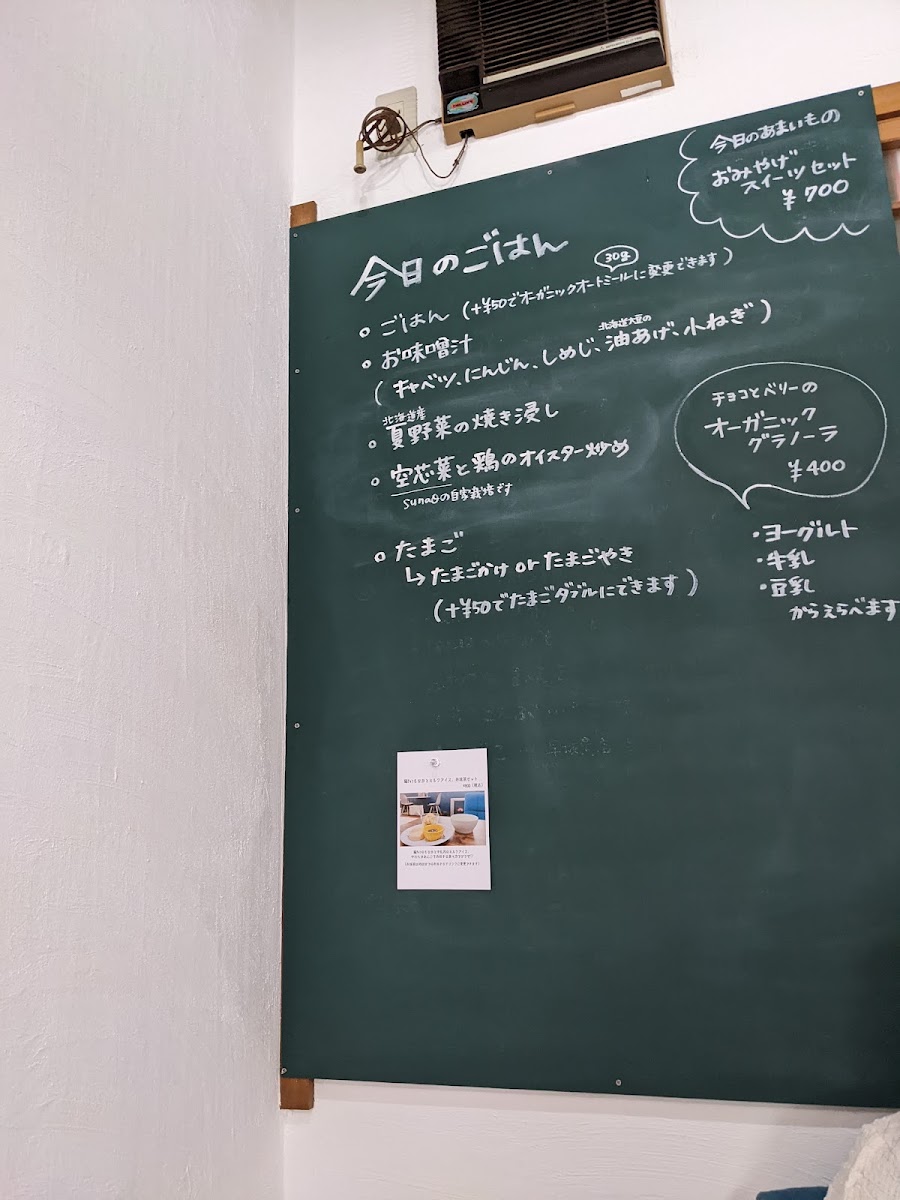 今日のあまいもの
おみやげ
スイーツセット
¥700
今日のごはん
30g
○ ごはん (+¥50でオーガニックオートミールに変更できます)
○ お味噌汁
北海道大豆の
(キャベツ、にんじん、しめじ、油あげ、小ねぎ)
北海道産
○ 夏野菜の焼き浸し
○ 空芯菜と鶏のオイスター炒め
の自家栽培です
○ たまご
↳ たまごかけ or たまごやき
(+¥50でたまごダブルにできます)
チョコとベリーの
オーガニック
グラノーラ
¥400
・ヨーグルト
・牛乳
・豆乳
からえらべます